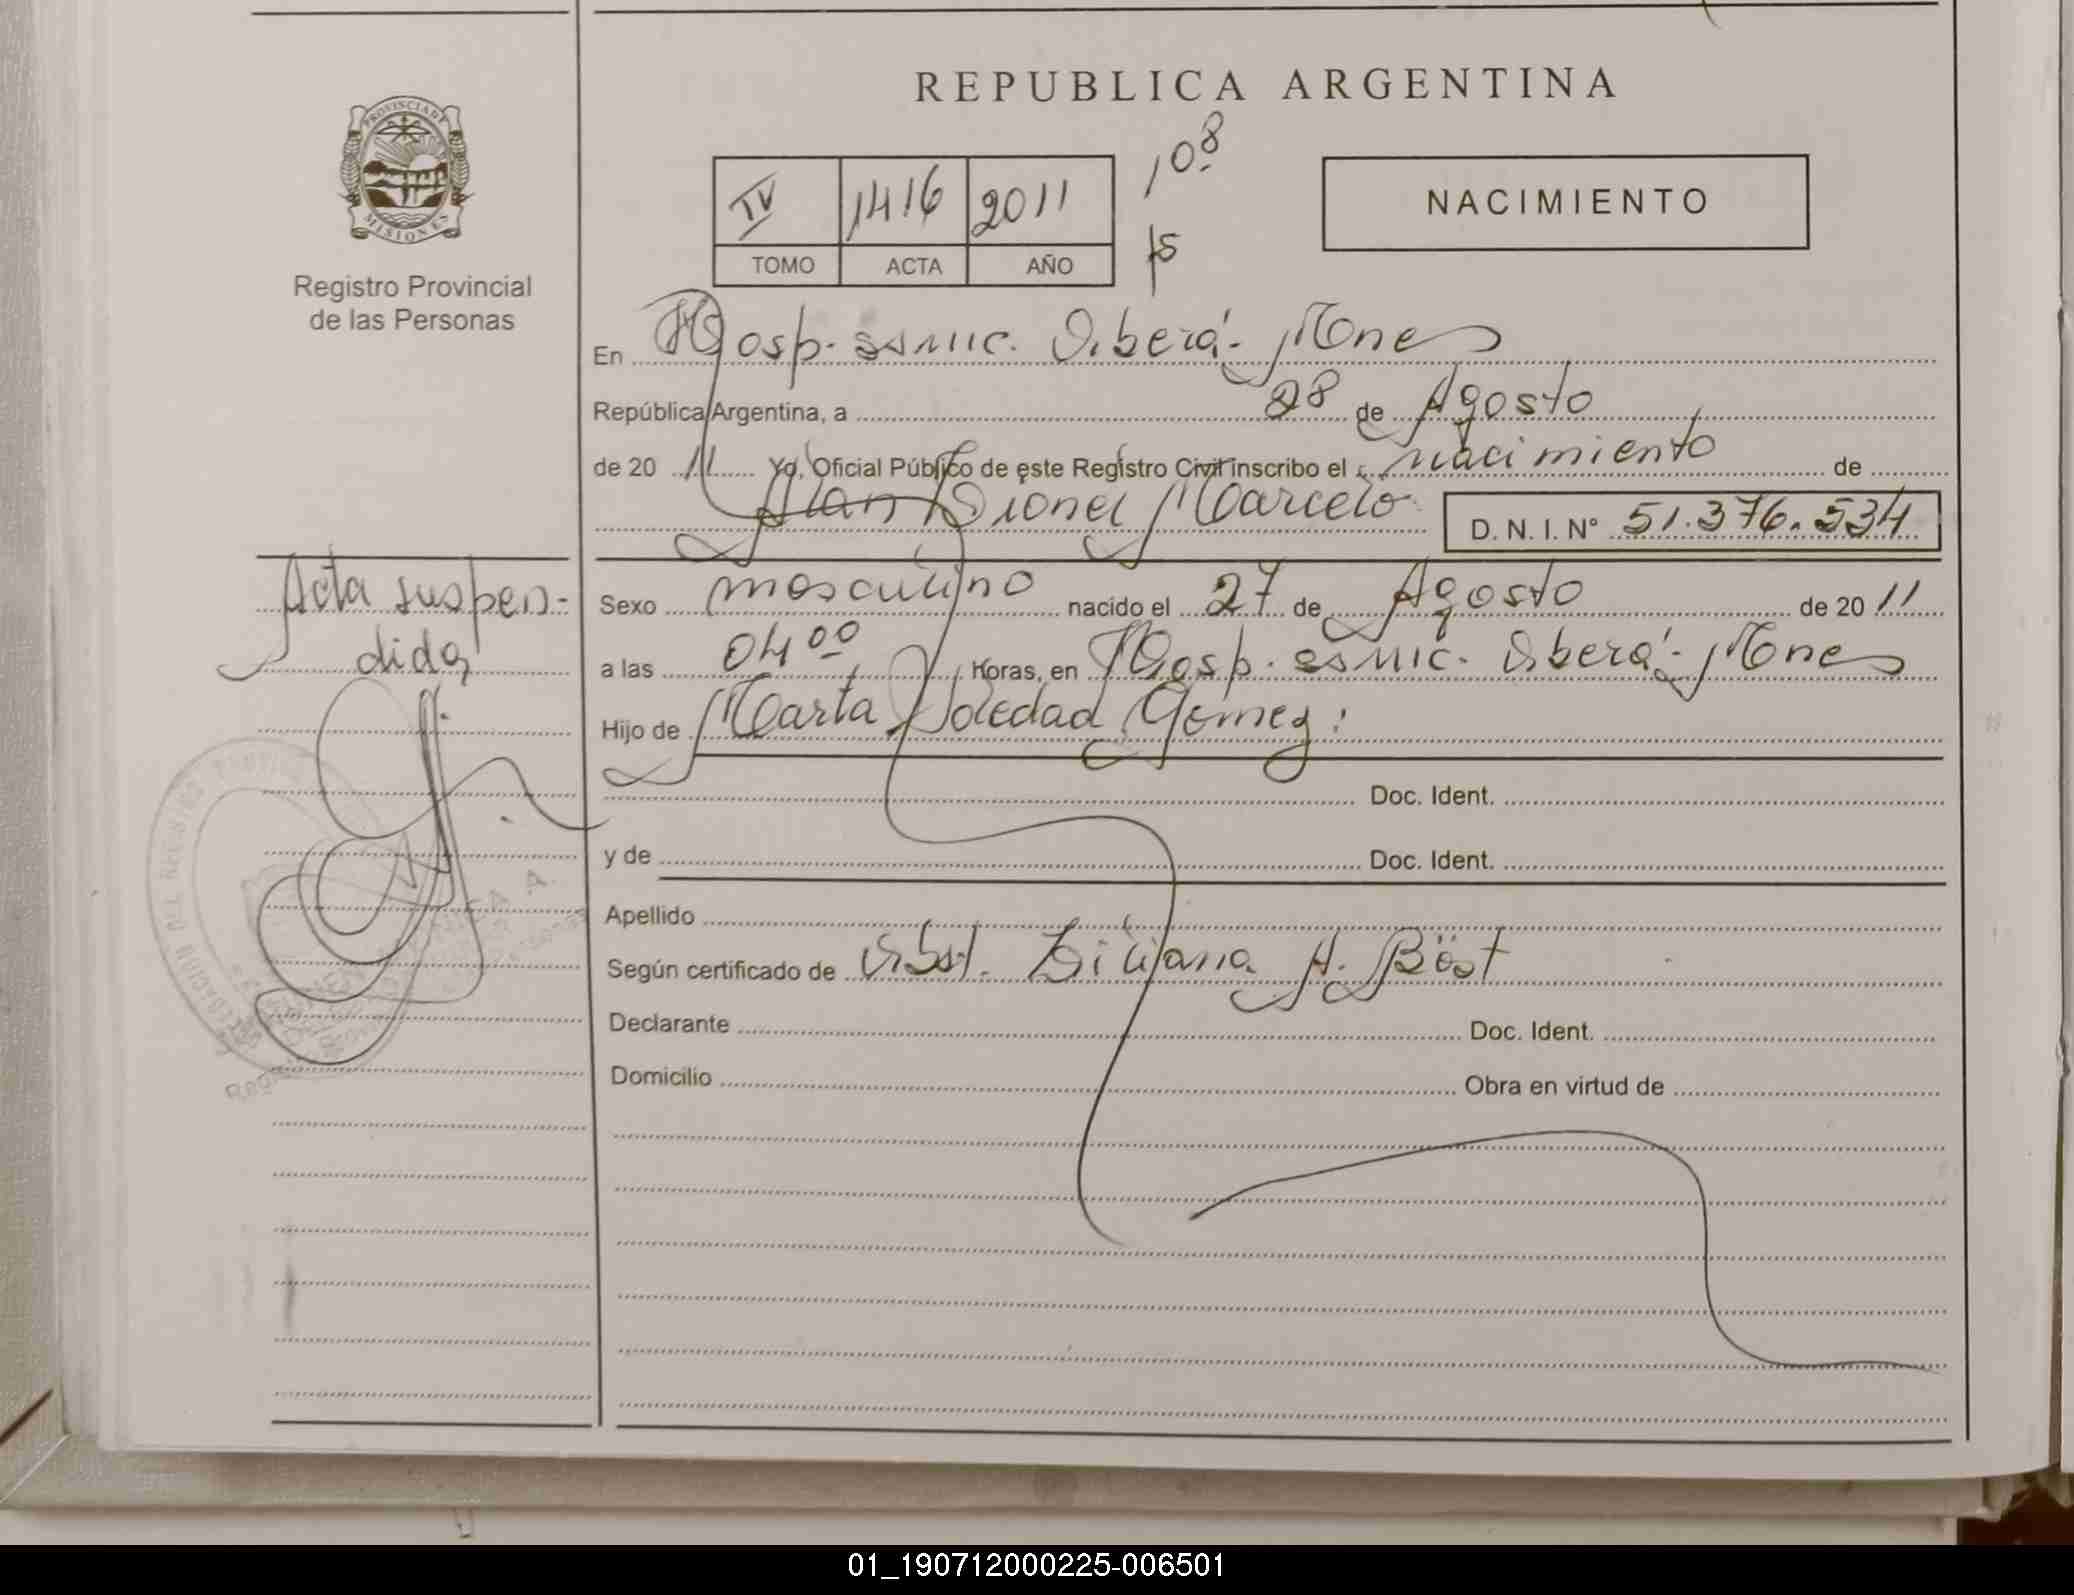 REPUBLICA ARGENTINA
PROVINCIA DE MISIONES
Registro Provincial
de las Personas
IV 1416 2011
TOMO ACTA AÑO
108
NACIMIENTO
En Hosp. ssmic. Oberá. Mnes
República Argentina, a 28 de Agosto
de 20 11 Yo, Oficial Público de este Registro Civil inscribo el nacimiento de
Alan Lionel Marcelo D. N. I. N° 51.376.534
Acta suspen-
dida
Sexo masculino nacido el 27 de Agosto de 20 11
a las 04 00 Horas, en Hosp. ssmic. Oberá. Mnes
Hijo de Marta Soledad Gomez:
Doc. Ident.
y de Doc. Ident.
Apellido
Según certificado de Obst. Liliana A. Böst
Declarante Doc. Ident.
Domicilio Obra en virtud de
01_190712000225-006501